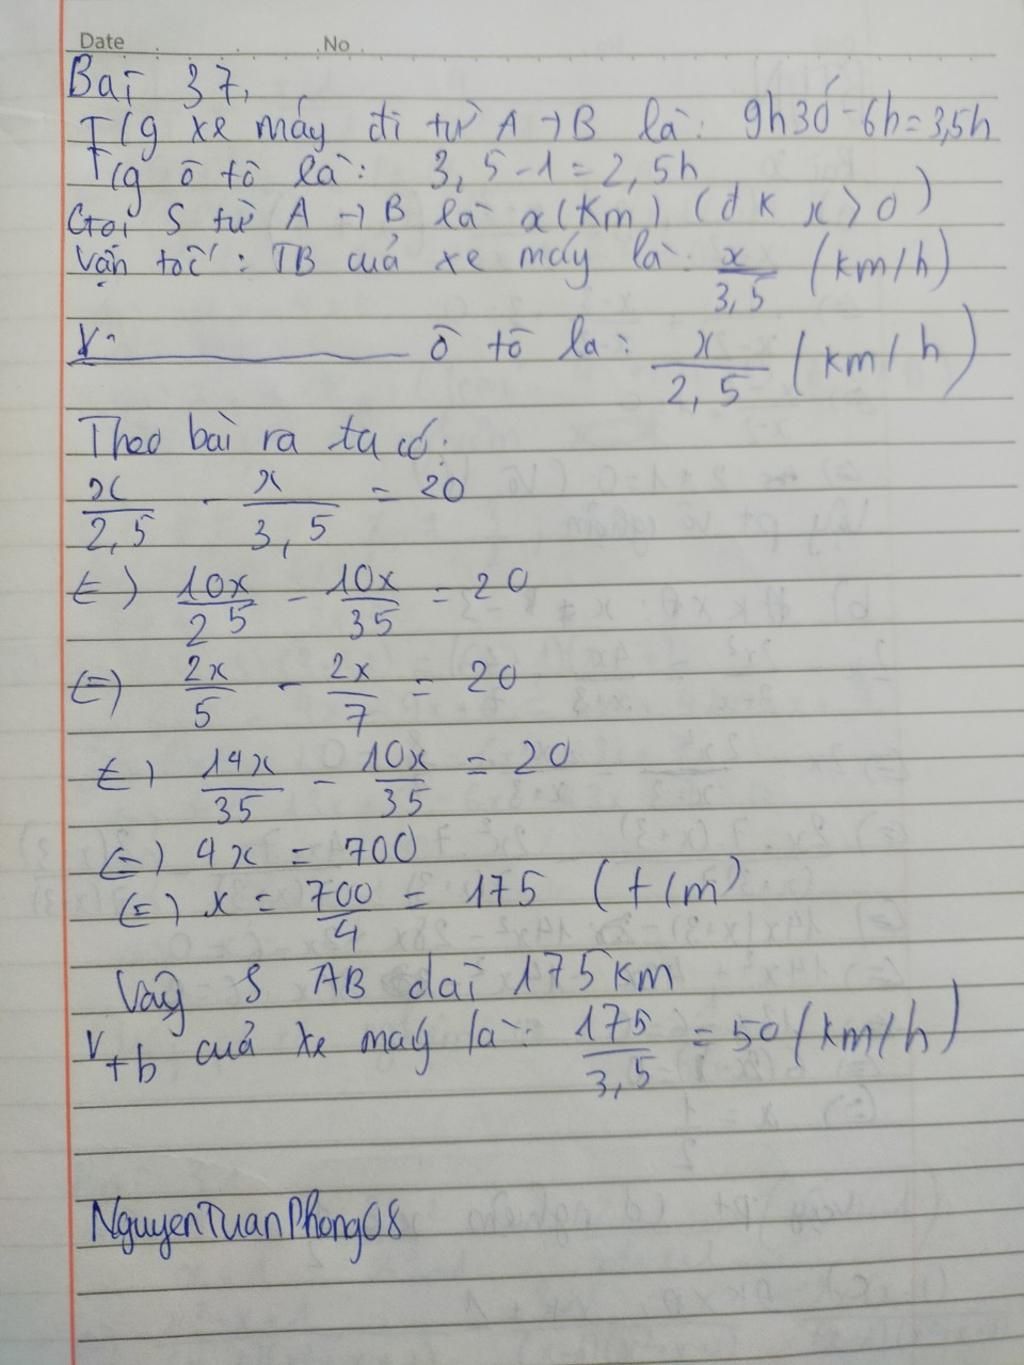 Date No
Bài 37,
T/g xe máy đi từ A → B là: 9h30 - 6h = 3,5h
T/g ô tô là: 3,5 - 1 = 2,5h
Gọi S từ A → B là x (km) (đk x > 0)
Vận tốc TB của xe máy là: x/3,5 (km/h)
V ô tô là: x/2,5 (km/h)
Theo bài ra ta có:
x/2,5 - x/3,5 = 20
(=) 10x/25 - 10x/35 = 20
(=) 2x/5 - 2x/7 = 20
(=) 14x/35 - 10x/35 = 20
(=) 4x = 700
(=) x = 700/4 = 175 (t/m)
Vậy S AB dài 175 km
Vtb của xe máy là: 175/3,5 = 50 (km/h)
NguyenTuanPhong08